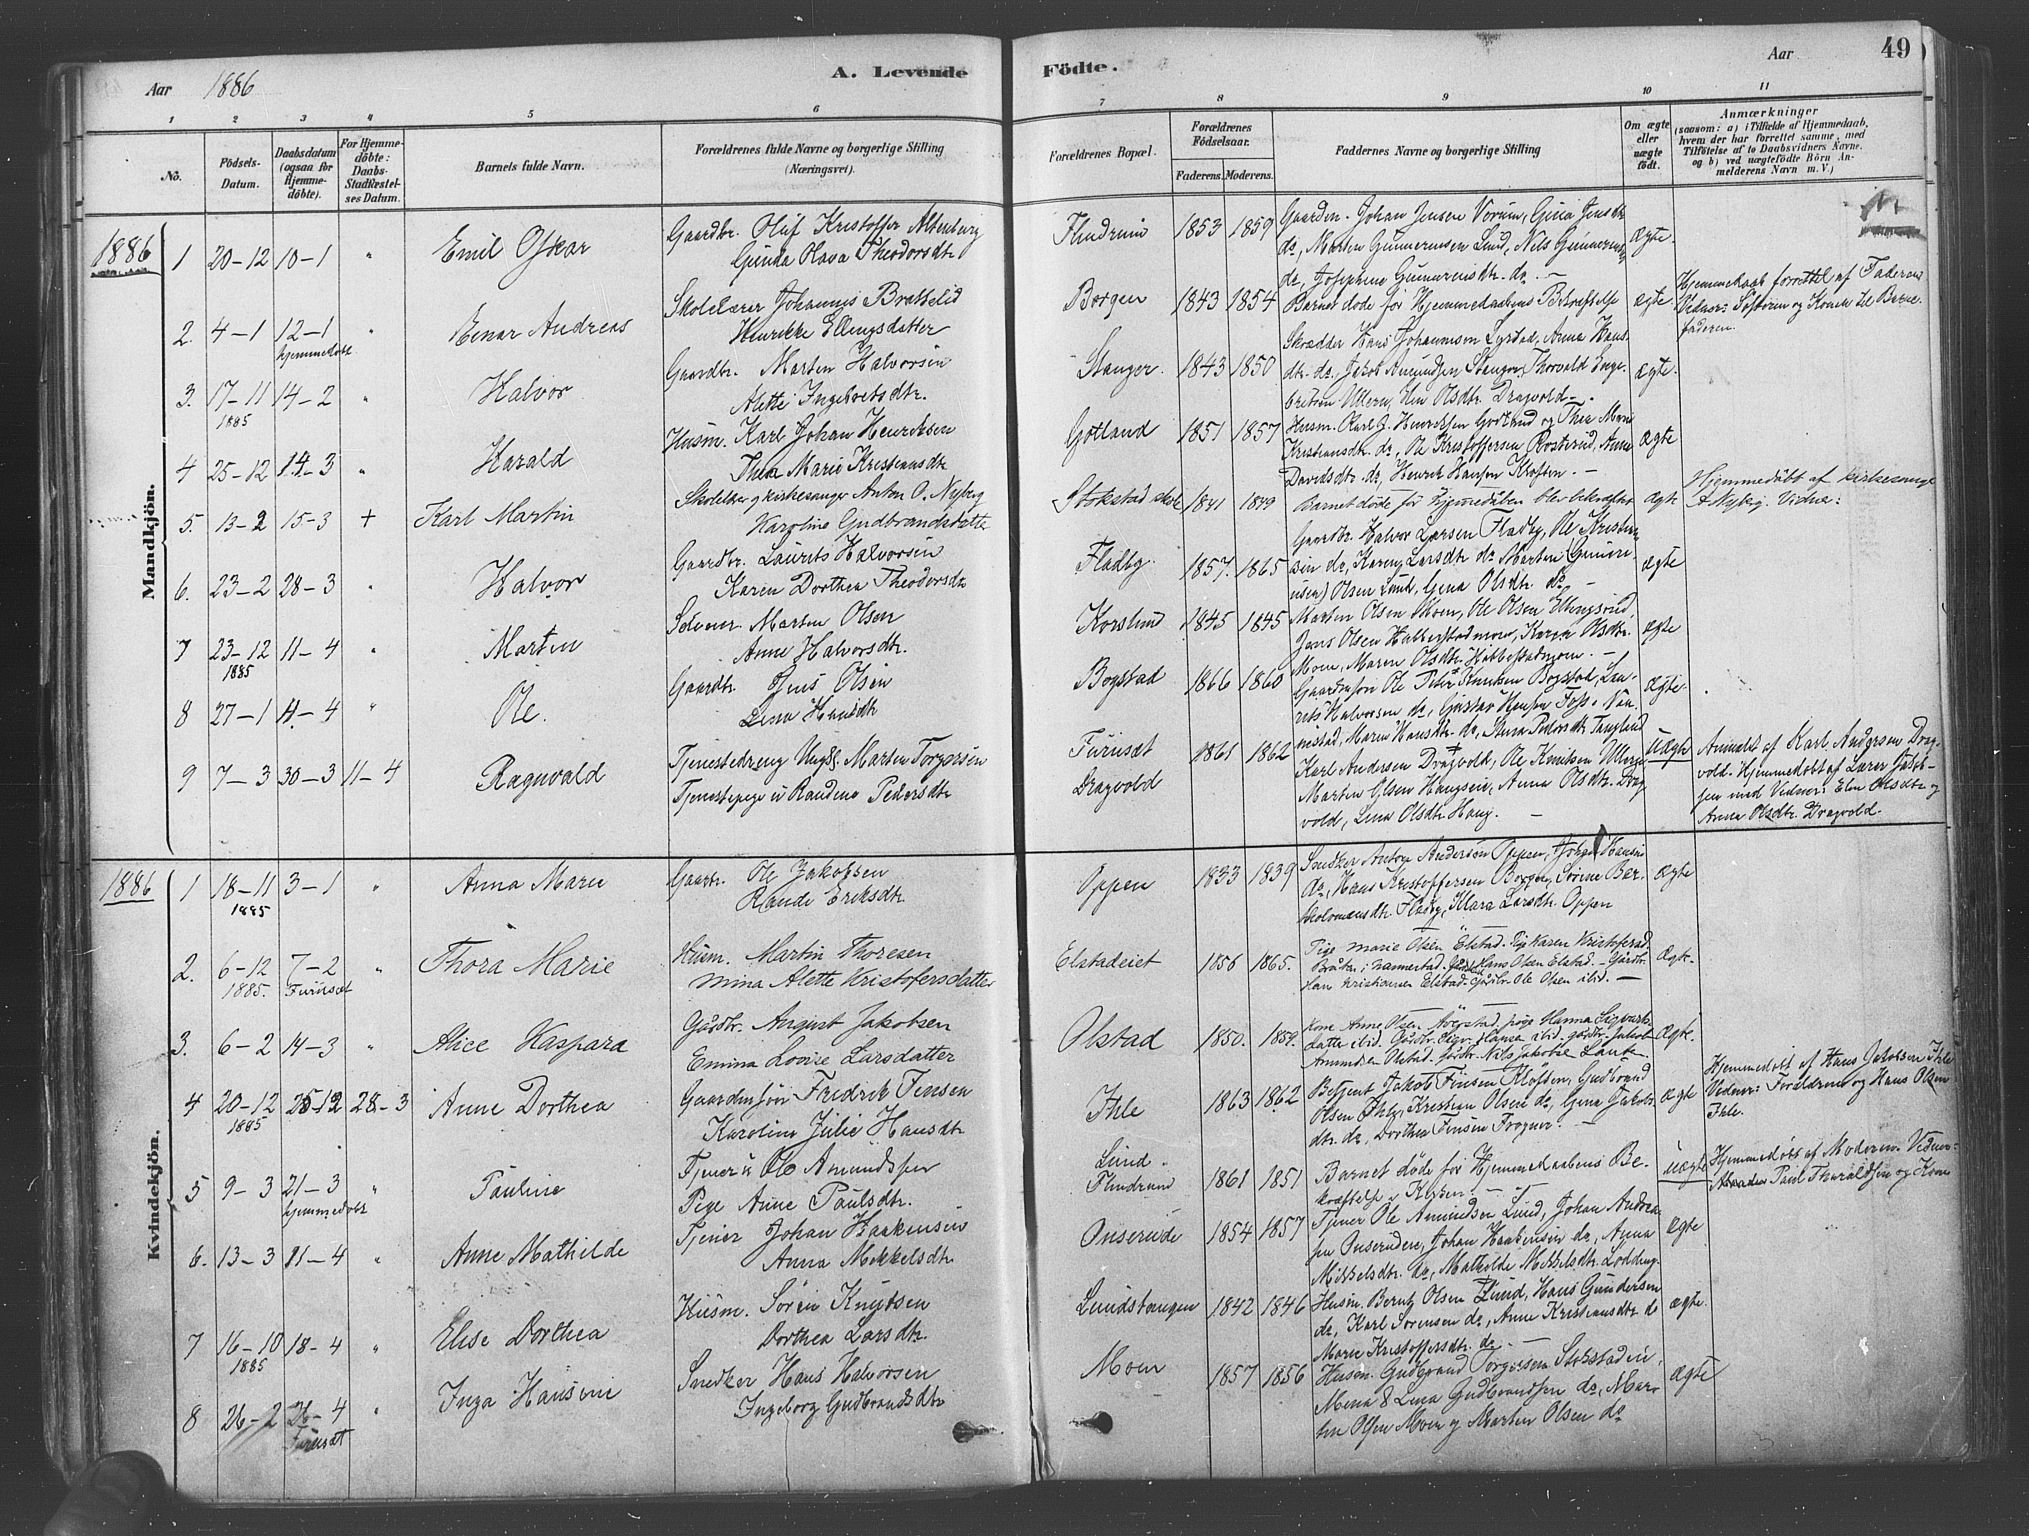 Aar 1886
A. Levende
Födte.
Aar
49
1 2 3 4 5 6 7 8 9 10 11
No.
Födsels-Datum.
Daabsdatum (ogsaa for Hjemmedöbte).
For Hjemmedöbte: Daabs-Stadfæstelses Datum.
Barnets fulde Navn.
Forældrenes fulde Navne og borgerlige Stilling
(Næringsvei).
Forældrenes Bopæl.
Forældrenes Födselsaar.
Faderens. Moderens.
Faddernes Navne og borgerlige Stilling
Om ægte eller uægte födt.
Anmærkninger
(saasom: a) i Tilfælde af Hjemmedaab, hvem der har forrettet samme, med Tilföielse af to Daabsvidners Navne. og b) ved uægtefödte Börn Anmelderens Navn m. V.)
Mandkjön.
1886
1 20-12 10-1 " Emil Oskar
Gaardbr. Oluf Kristoffer Altenborg
Gunda Olava Theodorsdtr
Flindrum 1853 1859
Gaardm. Johan Jensen Vorum, Gina Jensdtr
do, Marten Gunnerusen Lund, Nils Gunnerusen
do, Josephine Gunnerusdtr. do. —
ægte.
2. 4-1 12-1 " Einar Andreas
hjemmedøbt
Skolelærer Johannes Brattelid
Henrikke Ellingsdatter
Borgen 1843 1854
Barnet døde før Hjemmedaabens Bekræftelse
ægte.
Hjemmedaab forrettet af Faderen
Vidner: Søsteren og Konen til Barne-
faderen.
3. 17-11 14-2 " Halvor
1885
Gaardbr. Marten Halvorsen
Alette Ingebretsdtr.
Stanger. 1843 1850
Skrædder Hans Johannesen Lystad, Anna Hans-
dtr. do, Jakob Amundsen Stanger, Thorvald Enge-
bretsen Ullern, Elen Olsdtr. Dragvold —.
ægte.
4 25-12 14-3 " Harald
Husm. Karl Johan Henriksen
Thea Marie Kristiansdtr
Gotland 1851 1857
Husm. Karl J. Henriksen Gotlund og Thea Marie
Kristiansdtr. do, Ole Kristoffersen Rosterud, Anne
Davidsdtr. do, Henrik Hansen Kloften. —
ægte
5. 13-2 15-3 + Karl Martin
Skolelær og kirkesanger Anton O. Nyberg
Karoline Gudbrandsdatter
Stokstad skole 1841 1849
Barnet døde før hjemmedåben blev bekræftet
ægte
Hjemmedøbt af kirkesanger
A Nyberg. Vidne:
6. 23-2 28-3 " Halvor
Gaardbr. Laurits Halvorsen
Karen Dorthea Theodorsdtr
Fladby 1857. 1865
Gaardbr. Halvor Larsen Fladby, Ole Kristen-
sen do, Karen Larsdtr. do Marten (Gunne-
rusen) Olsen Lund, Gena Olsdtr. do. —
ægte
7 23-12 11-4 " Marten
1885
Selveier Marten Olsen
Anne Halvorsdtr.
Korslund 1845 1845
Marten Olsen Moen, Ole Olsen Ellingsrud,
Jens Olsen Habberstadmoen, Karen Olsdtr.
Moen, Maren Olsdtr. Habbestadmoen. —
ægte
8 27-1 11-4 " Ole.
Gaardbr. Jens Olsen
Lena Hansdtr
Bogstad 1866 1860
Gaardmsøn Ole Peter Knudsen Bogstad, Lau-
rits Halvorsen do, Gustav Hansen Foss, Nan-
nestad, Maren Hansdtr. do, Anna Pedersdtr.
ægte.
9 7-3 30-3 11-4 Ragnvald
Tjenestedreng Ungk. Marten Torgersen
Tjenestepige u Randine Pedersdtr
Furuset
Dragvold
1861 1862
Karl Andersen Dragvold, Ole Knudsen Ullern,
Marten Olsen Haugsen, Anna Olsdtr. Drag-
vold, Lena Olsdtr. Haug. —
uægte
Anmeldt af Karl Andersen Drag-
vold. Hjemmedøbt af Lærer Jakob-
sen med Vidner: Elen Olsdtr og
Anna Olsdtr. Dragvold.
Kvindekjön.
1886
1 18-11 3-1 " Anna Marie
1885
Gaardbr. Ole Jakobsen
Rande Eriksdtr
Oppen 1833 1839
Snedker Anton Andersen Oppen, Jørgen Hansen
do, Hans Kristoffersen Borgen, Sørine Bar-
tholomæusdtr. Fladby, Klara Larsdtr. Oppen
ægte
2. 6-12 7-2 " Thora Marie
1885. Furuset
Husm. Martin Thoresen
Mina Alette Kristofersdatter
Elstadeiet 1856 1865.
Pige Marie Olsen Elstad. Pige Karen Kristofersd.
Bråten i Nannestad. Hans Olsen Elstad. – Gårdbr.
Hans Kristiansen Elstad. Gårdbr. Ole Olsen ibid. —
Ægte.
3. 6-2 14-3 " Alice Kaspara
Gårdbr. August Jakobsen
Emma Lovise Larsdatter
Olstad 1850. 1859.
Kone Anne Olsen Åvgstad. pige Hanna Sigvarts-
datter ibid. Gårdbr. Sigv. Hansen ibid. gårdbr. Jakob
Amundsen Olstad. Gårdbr. Nils Jakobsen Lauten
Ægte.
4 20-12 25-12 28-3 Anne Dorthea
1885
Gaardmsøn Fredrik Jensen
Karoline Julie Hansdtr
Ihle 1863 1862
Betjent Jakob Jensen Kloften, Gudbrand
Olsen Ihle, Kristian Olsen do, Gena Jakobs-
dtr. do, Dorthea Jensen Frogner. —
ægte
Hjemmedøbt af Hans Jakobsen Ihle
Vidner: Forældrene og Hans Olsen
Ihle.
5 9-3 21-3 " Pauline
hjemmedøbt
Tjener u Ole Amundsen
Pige Anne Paulsdtr.
Lund.
Flindrund
1861 1851
Barnet døde før Hjemmedaabens Be-
kræftelse i Kirken. —
uægte
Hjemmedøbt af Moderen. Vidner:
Paul Tharaldsen og Kone
6. 13-3 11-4 " Anne Mathilde
Tjener Johan Haakensen
Anna Mikkelsdtr
Onserude 1854 1857
Tjener Ole Amundsen Lund, Johan Andrea-
sen Onseruden, Johan Haakensen do, Anna
Mikkelsdtr. do, Mathilde Mikkelsdtr. Lodding.
ægte
7 16-10 18-4 " Elise Dorthea
1885
Husm. Søren Knudsen
Dorthea Larsdtr.
Lundstangen 1842 1846
Husm. Bernt Olsen Lund, Hans Gundersen
do, Karl Sørensen do, Anne Kristiansdtr. do
Marie Kristoffersdtr. do —
ægte.
8 26-2 26-4 " Inga Hansine
Furuset
Snedker Hans Halvorsen
Ingeborg Gudbrandsdtr
Moen 1857 1856
Husm. Gudbrand Torgersen Stokstadeie,
Mena & Lena Gudbrandsen do, Mar-
tin Olsen Moen og Marten Olsen do
ægte